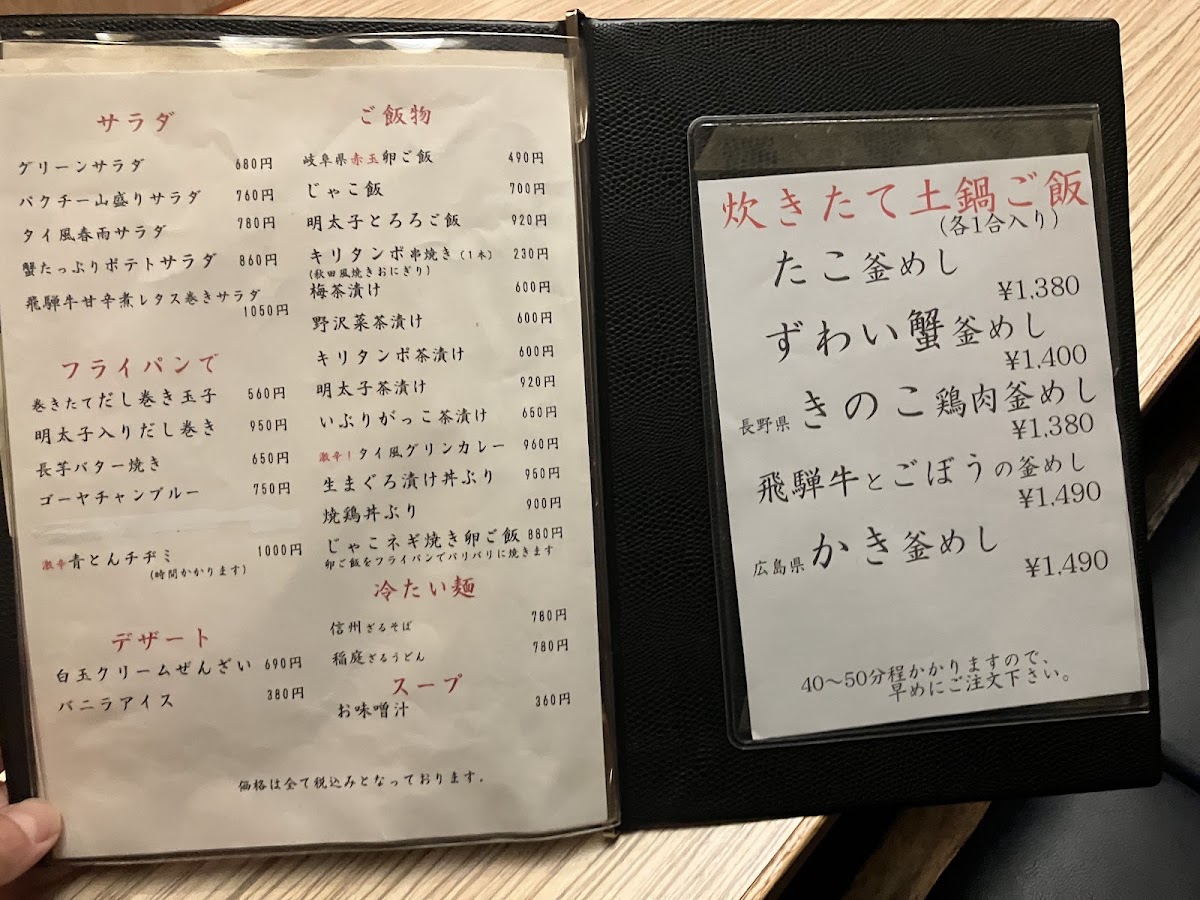 サラダ
グリーンサラダ 680円
パクチー山盛りサラダ 760円
タイ風春雨サラダ 780円
蟹たっぷりポテトサラダ 860円
飛騨牛甘辛煮レタス巻きサラダ
1050円
フライパンで
巻きたてだし巻き玉子 560円
明太子入りだし巻き 950円
長芋バター焼き 650円
ゴーヤチャンプルー 750円
激辛青とんチヂミ 1000円
(時間かかります)
デザート
白玉クリームぜんざい 690円
バニラアイス 380円
ご飯物
岐阜県赤玉卵ご飯 490円
じゃこ飯 700円
明太子とろろご飯 920円
キリタンポ串焼き(1本) 230円
(秋田風焼きおにぎり)
梅茶漬け 600円
野沢菜茶漬け 600円
キリタンポ茶漬け 600円
明太子茶漬け 920円
いぶりがっこ茶漬け 650円
激辛!タイ風グリンカレー 960円
生まぐろ漬け丼ぶり 950円
焼鶏丼ぶり 900円
じゃこネギ焼き卵ご飯 880円
卵ご飯をフライパンでパリパリに焼きます
冷たい麺
信州ざるそば 780円
稲庭ざるうどん 780円
スープ
お味噌汁 360円
価格は全て税込みとなっております.
炊きたて土鍋ご飯
(各1合入り)
たこ釜めし
¥1,380
ずわい蟹釜めし
¥1,400
長野県きのこ鶏肉釜めし
¥1,380
飛騨牛とごぼうの釜めし
¥1,490
広島県かき釜めし
¥1,490
40〜50分程かかりますので、
早めにご注文下さい。